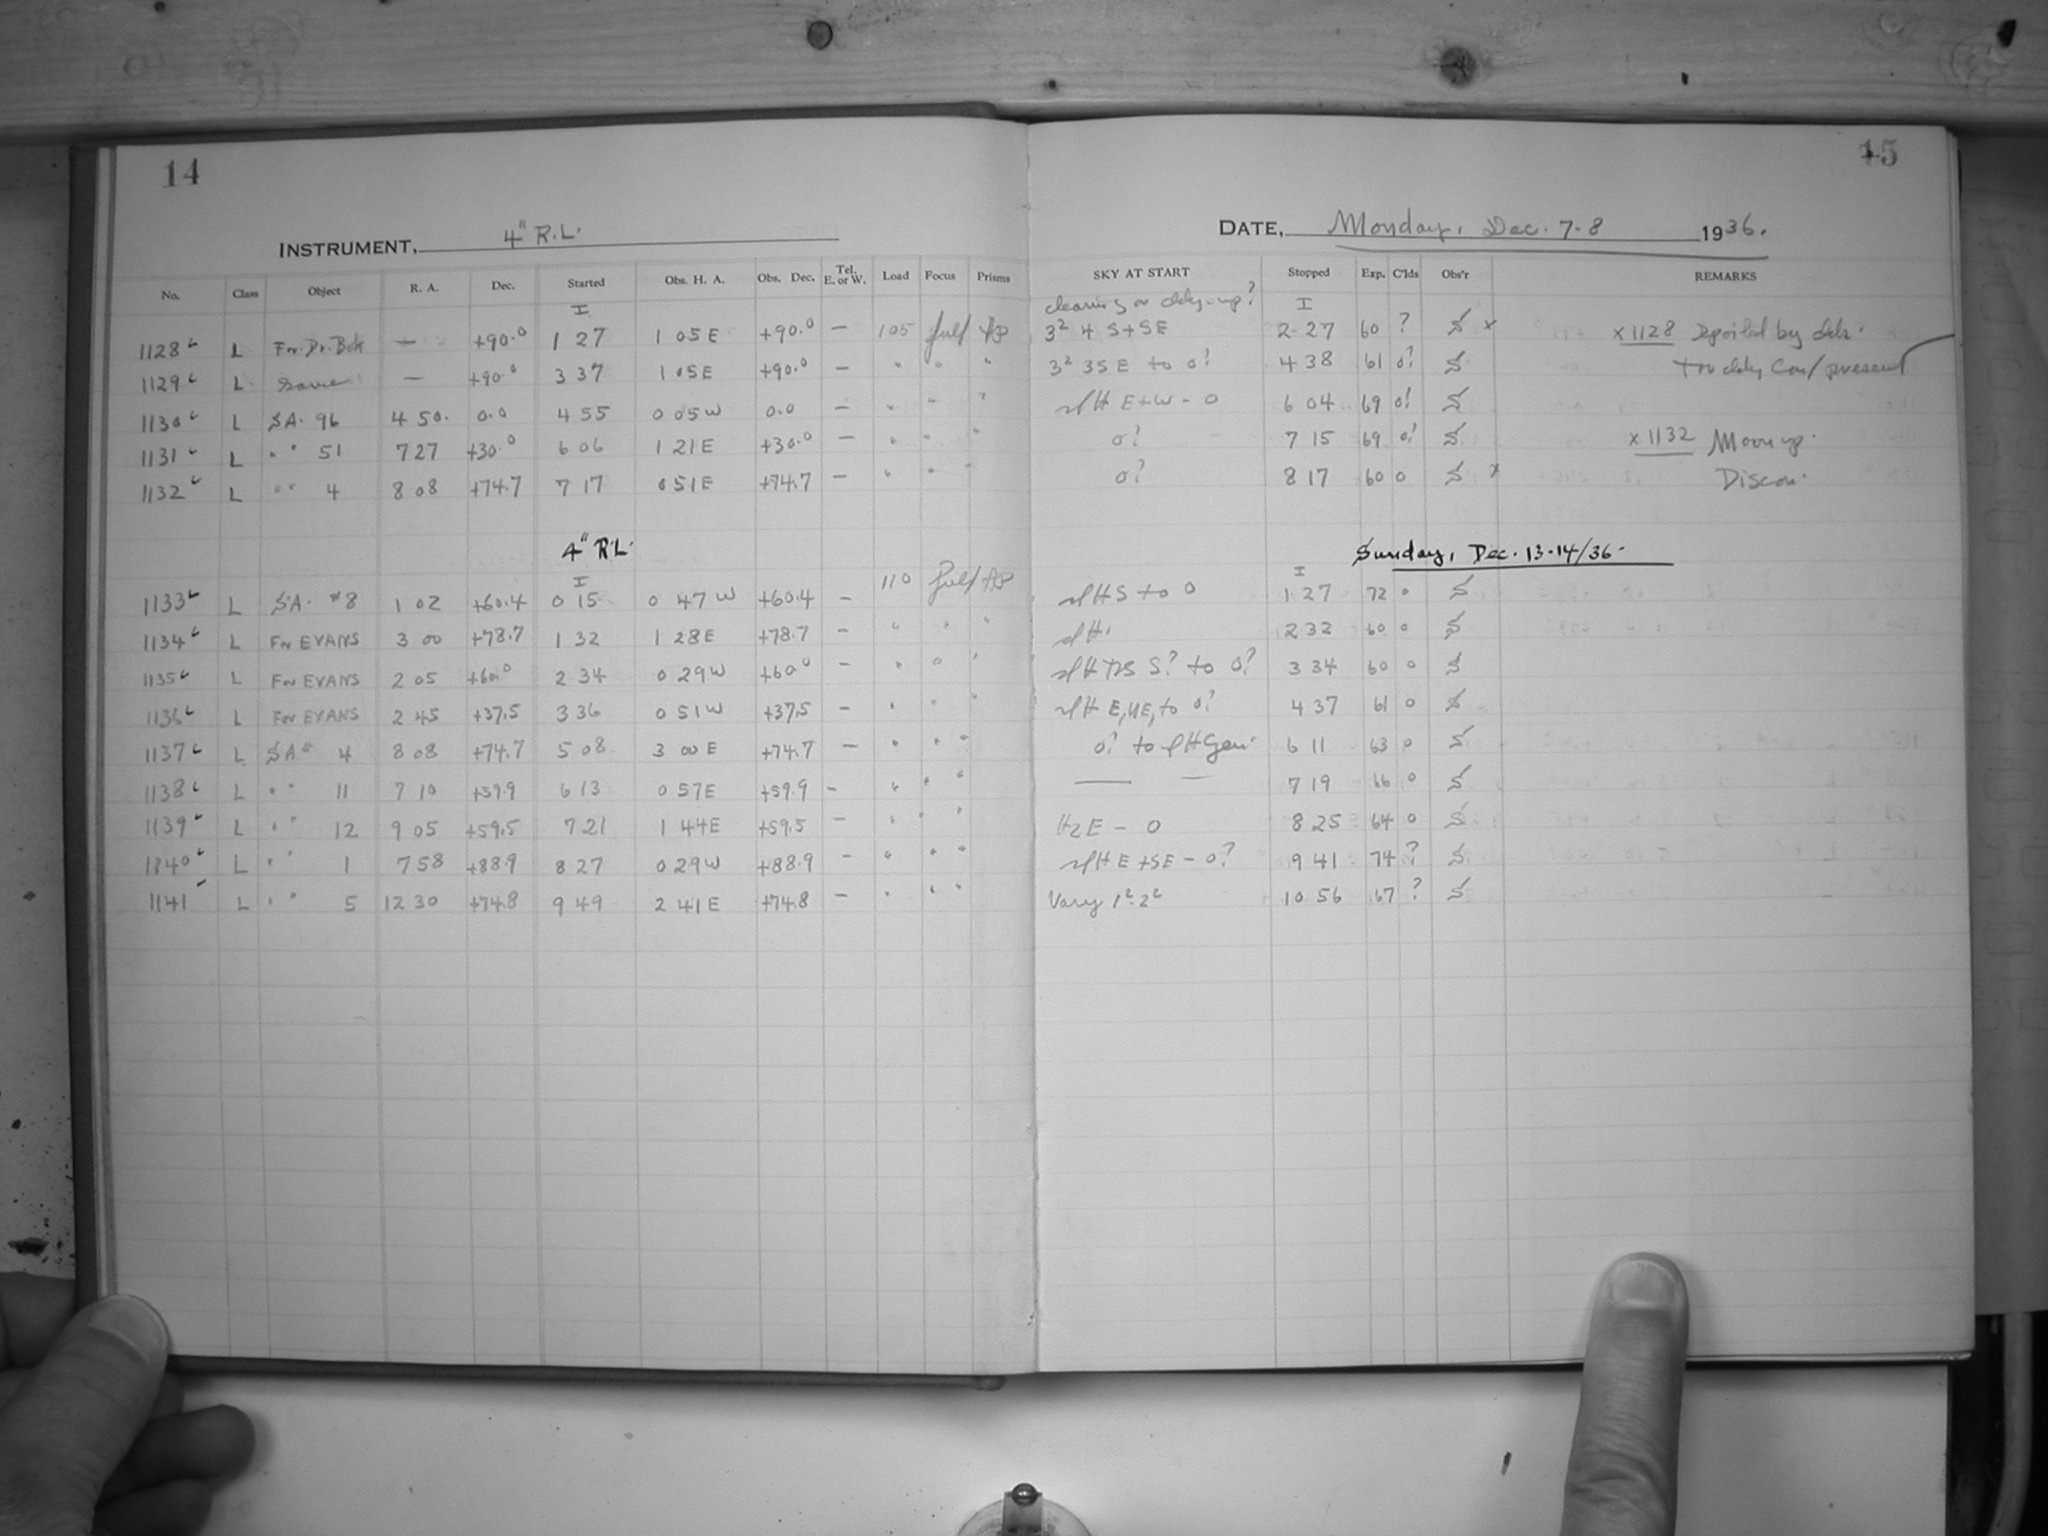 14
15
INSTRUMENT, 4" R.L.
DATE, Monday, Dec. 7-8 1936.
No. Class Object R. A. Dec. Started Obs. H. A. Obs. Dec. Tel. E. or W. Load Focus Prisms SKY AT START Stopped Exp. C'lds Obs'r REMARKS
I clearing or cldy-up? I
1128 L For Dr. Bok — +90.0 1 27 1 05 E +90.0 — 105 3² 4 S+SE 2 27 60 ? S x x 1128 Spoiled by clds.
1129 L Same — +90.0 3 37 1 05 E +90.0 — " " " 3² 3SE to 0? 4 38 61 0? S
1130 L S.A. 96 4 50. 0.0 4 55 0 05 W 0.0 — " " " E+W - 0 6 04 69 0? S
1131 L " " 51 7 27 +30.0 6 06 1 21 E +30.0 — " " " 0? 7 15 69 0? S x 1132 Moon up.
1132 L " " 4 8 08 +74.7 7 17 0 51 E +74.7 — " " " 0? 8 17 60 0 S x Discon.
4" R.L. Sunday, Dec. 13-14/36.
I 110 I
1133 L S.A. #8 1 02 +60.4 0 15 0 47 W +60.4 — S to 0 1 27 72 0 S
1134 L For EVANS 3 00 +78.7 1 32 1 28 E +78.7 — " " " 2 32 60 0 S
1135 L For EVANS 2 05 +60.0 2 34 0 29 W +60.0 — " " " S? to 0? 3 34 60 0 S
1136 L For EVANS 2 45 +37.5 3 36 0 51 W +37.5 — " " " E, NE, to 0? 4 37 61 0 S
1137 L S.A. # 4 8 08 +74.7 5 08 3 00 E +74.7 — " " " 0? to 6 11 63 0 S
1138 L " " 11 7 10 +59.9 6 13 0 57 E +59.9 — " " " — — 7 19 66 0 S
1139 L " " 12 9 05 +59.5 7 21 1 44 E +59.5 — " " " HZ E - 0 8 25 64 0 S
1140 L " " 1 7 58 +88.9 8 27 0 29 W +88.9 — " " " E+SE - 0? 9 41 74 ? S
1141 L " " 5 12 30 +74.8 9 49 2 41 E +74.8 — " " " Vary 10 56 67 ? S